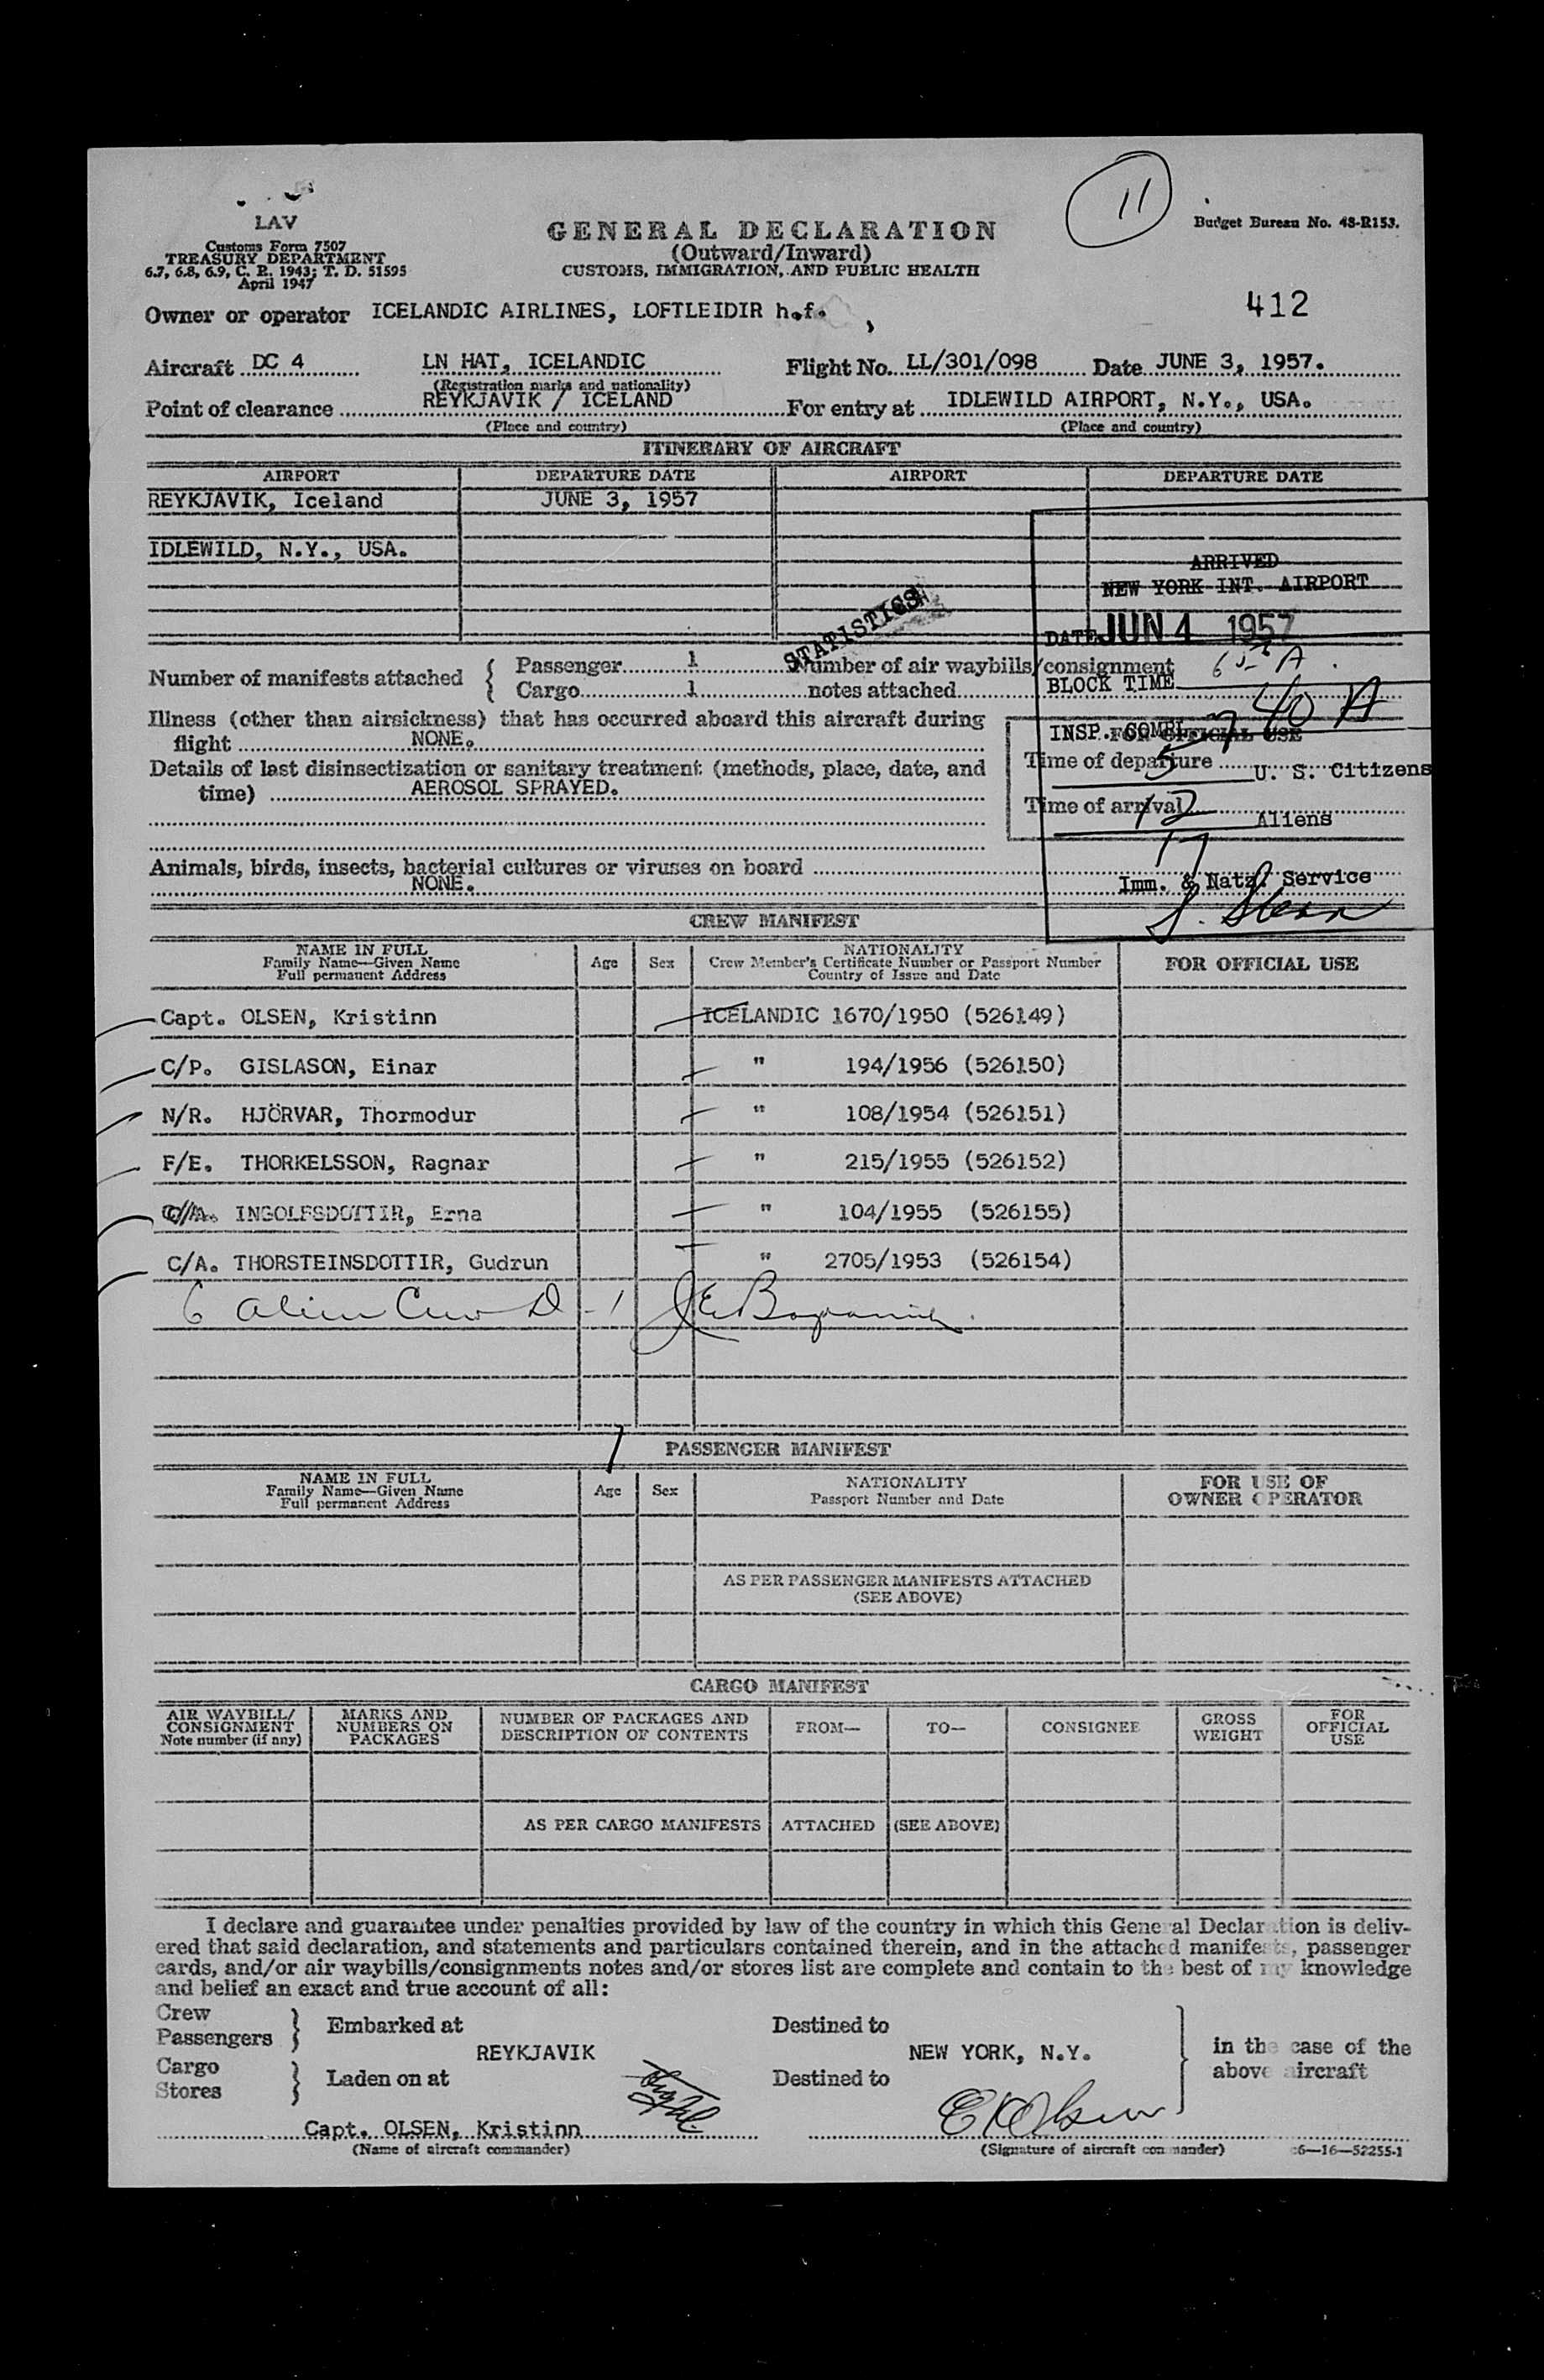 11
LAV
Customs Form 7507
TREASURY DEPARTMENT
6.7, 6.8, 6.9, C. R. 1943; T. D. 51595
April 1947
GENERAL DECLARATION
(Outward/Inward)
CUSTOMS, IMMIGRATION, AND PUBLIC HEALTH
Budget Bureau No. 48-R153.
412
Owner or operator ICELANDIC AIRLINES, LOFTLEIDIR h.f. ,
Aircraft DC 4 LN HAT, ICELANDIC Flight No. LL/301/098 Date JUNE 3, 1957.
(Registration marks and nationality)
Point of clearance REYKJAVIK / ICELAND For entry at IDLEWILD AIRPORT, N.Y., USA.
(Place and country) (Place and country)
ITINERARY OF AIRCRAFT
AIRPORT DEPARTURE DATE AIRPORT DEPARTURE DATE
REYKJAVIK, Iceland JUNE 3, 1957
IDLEWILD, N.Y., USA.
ARRIVED
NEW YORK INT. AIRPORT
STATISTICS
DATE JUN 4 1957
Number of manifests attached { Passenger 1 Number of air waybills/consignment
Cargo 1 notes attached
BLOCK TIME
Illness (other than airsickness) that has occurred aboard this aircraft during
flight NONE.
INSP. COMPL. 7 40 A
FOR OFFICIAL USE
Details of last disinsectization or sanitary treatment (methods, place, date, and
time) AEROSOL SPRAYED.
Time of departure
5 U. S. Citizens
Time of arrival
12 Aliens
17
Animals, birds, insects, bacterial cultures or viruses on board
NONE.
Imm. & Natz. Service
CREW MANIFEST
NAME IN FULL
Family Name—Given Name
Full permanent Address
Age Sex
NATIONALITY
Crew Member's Certificate Number or Passport Number
Country of Issue and Date
FOR OFFICIAL USE
Capt. OLSEN, Kristinn ICELANDIC 1670/1950 (526149)
C/P. GISLASON, Einar " 194/1956 (526150)
N/R. HJÖRVAR, Thormodur " 108/1954 (526151)
F/E. THORKELSSON, Ragnar " 215/1955 (526152)
C/A. INGOLFSDOTTIR, Erna " 104/1955 (526155)
C/A. THORSTEINSDOTTIR, Gudrun " 2705/1953 (526154)
6 Alien Crew D-1
PASSENGER MANIFEST
NAME IN FULL
Family Name—Given Name
Full permanent Address
Age Sex
NATIONALITY
Passport Number and Date
FOR USE OF
OWNER OPERATOR
AS PER PASSENGER MANIFESTS ATTACHED
(SEE ABOVE)
CARGO MANIFEST
AIR WAYBILL/
CONSIGNMENT
Note number (if any)
MARKS AND
NUMBERS ON
PACKAGES
NUMBER OF PACKAGES AND
DESCRIPTION OF CONTENTS
FROM— TO— CONSIGNEE
GROSS
WEIGHT
FOR
OFFICIAL
USE
AS PER CARGO MANIFESTS ATTACHED (SEE ABOVE)
I declare and guarantee under penalties provided by law of the country in which this General Declaration is deliv-
ered that said declaration, and statements and particulars contained therein, and in the attached manifests, passenger
cards, and/or air waybills/consignments notes and/or stores list are complete and contain to the best of my knowledge
and belief an exact and true account of all:
Crew
Passengers } Embarked at Destined to
REYKJAVIK NEW YORK, N.Y.
in the case of the
above aircraft
Cargo
Stores } Laden on at Destined to
Capt. OLSEN, Kristinn EKOlsen
(Name of aircraft commander) (Signature of aircraft commander) c6—16—52255-1